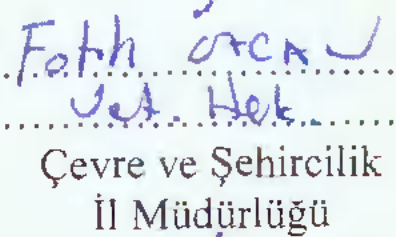 Fatih ÖZCAN
Vet. Hek.
Çevre ve Şehircilik
İl Müdürlüğü